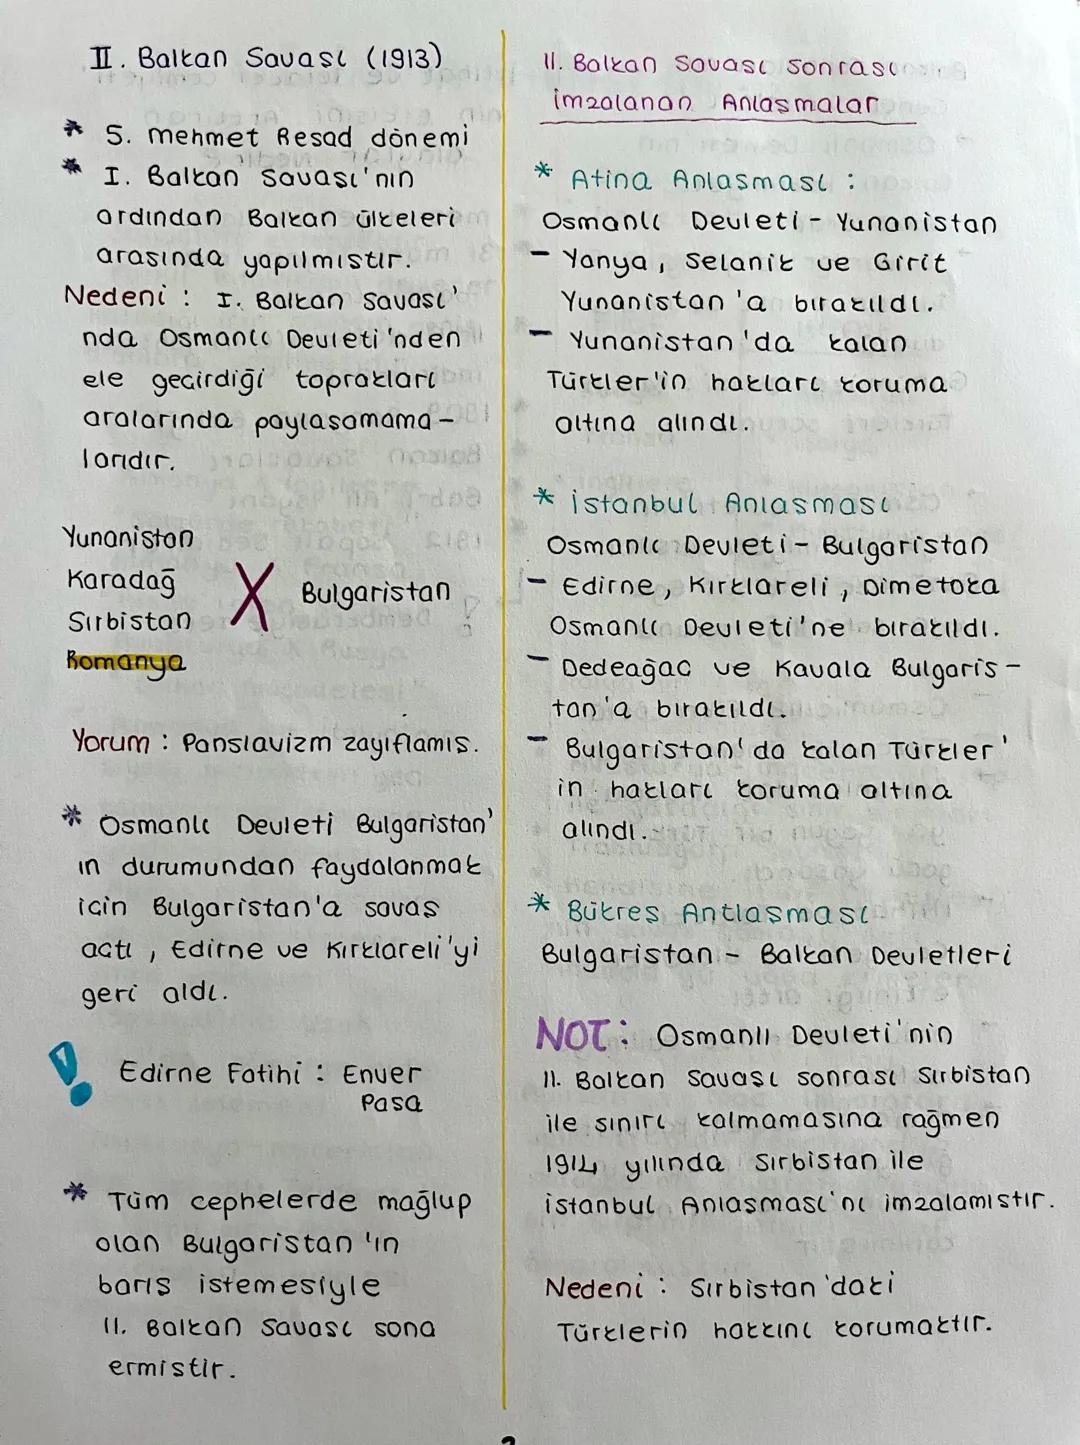 II. Balkan Savası (1913)
* 5. mehmet Resad dönemi
* I. Balkan savası'nın
ardından Balkan ülkeleri
arasında yapılmıstır.
Nedeni : I. Balkan savası'
nda Osmanlı Devleti'nden
ele gecirdiği toprakları
aralarında paylasamama-
larıdır.
Yunanistan
Karadağ
Sırbistan
Romanya
X Bulgaristan
Yorum : Panslavizm zayıflamıs.
* Osmanlı Devleti Bulgaristan'
ın durumundan faydalanmak
icin Bulgaristan'a savas
actı , Edirne ve Kırklareli'yi
geri aldı.
! Edirne Fatihi : Enver
Pasa
* Tüm cephelerde mağlup
olan Bulgaristan'ın
barıs istemesiyle
II. Balkan Savası sona
ermistir.
II. Balkan Savası sonrası
imzalanan Anlasmalar
* Atina Anlasması :
Osmanlı Devleti - Yunanistan
- Yanya, Selanik ve Girit
Yunanistan'a bırakıldı.
- Yunanistan'da kalan
Türkler'in hakları koruma
altına alındı.
* istanbul Anlasması
Osmanlı Devleti - Bulgaristan
- Edirne, Kırklareli, Dimetoka
Osmanlı Devleti'ne bırakıldı.
- Dedeağac ve Kavala Bulgaris-
tan'a bırakıldı.
- Bulgaristan'da kalan Türkler'
in hakları koruma altına
alındı.
* Bükres Antlasması
Bulgaristan - Balkan Devletleri
NOT: Osmanlı Devleti'nin
II. Balkan Savası sonrası Sırbistan
ile sınırı kalmamasına rağmen
1914 yılında Sırbistan ile
istanbul Anlasması'nı imzalamıstır.
Nedeni : Sırbistan'daki
Türklerin hakkını korumaktır.